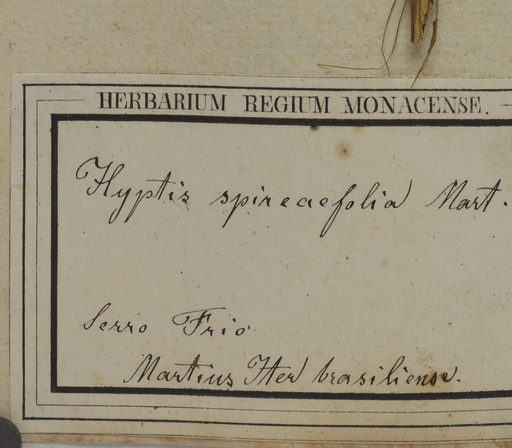 HERBARIUM REGIUM MONACENSE.
Hyptis spireaefolia Mart.
Serro Frio
Martius Iter brasiliense.